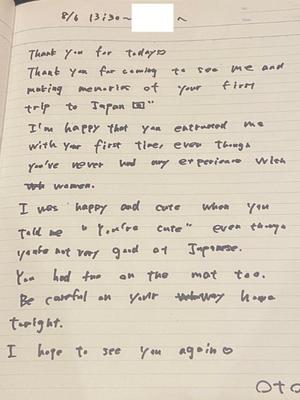 8/6 13:30~ ~
Thank you for today♡
Thank you for coming to see me and
making memories of your first
trip to Japan 🇯🇵"
I'm happy that you entrusted me
with your first time, even though
you've never had any experience with
women.
I was happy and cute when you
told me "You're cute" even though
you're not very good at Japanese.
You had fun on the mat too.
Be careful on your way home
tonight.
I hope to see you again♡